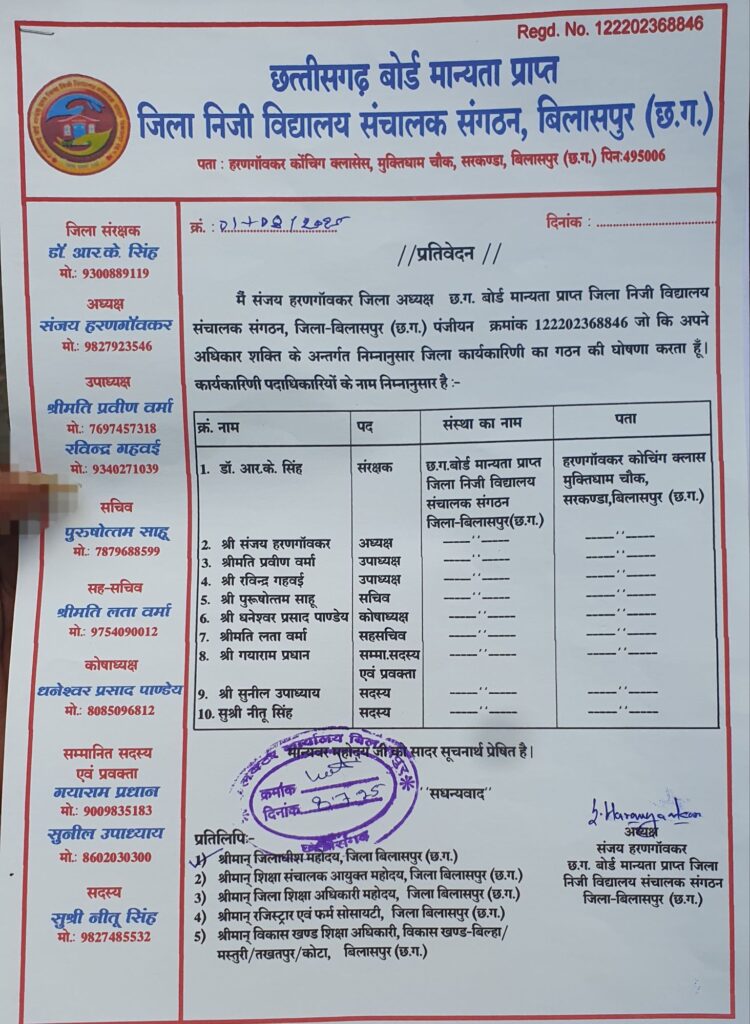 Regd. No. 122202368846
छत्तीसगढ़ बोर्ड मान्यता प्राप्त
जिला निजी विद्यालय संचालक संगठन, बिलासपुर (छ.ग.)
पता : हरणगॉवकर कोंचिग क्लासेस, मुक्तिधाम चौक, सरकण्डा, बिलासपुर (छ.ग.) पिन:495006
जिला संरक्षक
डॉ. आर.के. सिंह
मो.: 9300889119
अध्यक्ष
संजय हरणगॉवकर
मो.: 9827923546
उपाध्यक्ष
श्रीमति प्रवीण वर्मा
मो.: 7697457318
रविन्द्र गहवई
मो.: 9340271039
सचिव
पुरुषोत्तम साहू
मो.: 7879688599
सह-सचिव
श्रीमति लता वर्मा
मो.: 9754090012
कोषाध्यक्ष
धनेश्वर प्रसाद पाण्डेय
मो.: 8085096812
सम्मानित सदस्य
एवं प्रवक्ता
गयाराम प्रधान
मो.: 9009835183
सुनील उपाध्याय
मो.: 8602030300
सदस्य
सुश्री नीतू सिंह
मो.: 9827485532
क्रं. :
दिनांक :
//प्रतिवेदन //
मैं संजय हरणगॉवकर जिला अध्यक्ष छ.ग. बोर्ड मान्यता प्राप्त जिला निजी विद्यालय
संचालक संगठन, जिला-बिलासपुर (छ.ग.) पंजीयन क्रमांक 122202368846 जो कि अपने
अधिकार शक्ति के अन्तर्गत निम्नानुसार जिला कार्यकारिणी का गठन की घोषणा करता हूँ।
कार्यकारिणी पदाधिकारियों के नाम निम्नानुसार है :-
क्रं. नाम पद संस्था का नाम पता
1. डॉ. आर.के. सिंह संरक्षक छ.ग.बोर्ड मान्यता प्राप्त हरणगॉवकर कोचिंग क्लास
जिला निजी विद्यालय मुक्तिधाम चौक,
संचालक संगठन सरकण्डा,बिलासपुर (छ.ग.)
जिला-बिलासपुर(छ.ग.)
2. श्री संजय हरणगॉवकर अध्यक्ष -----''----- -----''-----
3. श्रीमति प्रवीण वर्मा उपाध्यक्ष -----''----- -----''-----
4. श्री रविन्द्र गहवई उपाध्यक्ष -----''----- -----''-----
5. श्री पुरूषोत्तम साहू सचिव -----''----- -----''-----
6. श्री धनेश्वर प्रसाद पाण्डेय कोषाध्यक्ष -----''----- -----''-----
7. श्रीमति लता वर्मा सहसचिव -----''----- -----''-----
8. श्री गयाराम प्रधान सम्मा.सदस्य -----''----- -----''-----
एवं प्रवक्ता
9. श्री सुनील उपाध्याय सदस्य -----''----- -----''-----
10. सुश्री नीतू सिंह सदस्य -----''----- -----''-----
मान्यवर महोदय जी की सादर सूचनार्थ प्रेषित है।
क्रमांक
दिनांक 2.7.25
छत्तीसगढ़
"सधन्यवाद"
अध्यक्ष
संजय हरणगॉवकर
छ.ग. बोर्ड मान्यता प्राप्त जिला
निजी विद्यालय संचालक संगठन
जिला-बिलासपुर (छ.ग.)
प्रतिलिपि:-
1) श्रीमान् जिलाधीश महोदय, जिला बिलासपुर (छ.ग.)
2) श्रीमान् शिक्षा संचालक आयुक्त महोदय, जिला बिलासपुर (छ.ग.)
3) श्रीमान् जिला शिक्षा अधिकारी महोदय, जिला बिलासपुर (छ.ग.)
4) श्रीमान् रजिस्ट्रार एवं फर्म सोसायटी, जिला बिलासपुर (छ.ग.)
5) श्रीमान् विकास खण्ड शिक्षा अधिकारी, विकास खण्ड-बिल्हा/
मस्तुरी/तखतपुर/कोटा, बिलासपुर (छ.ग.)